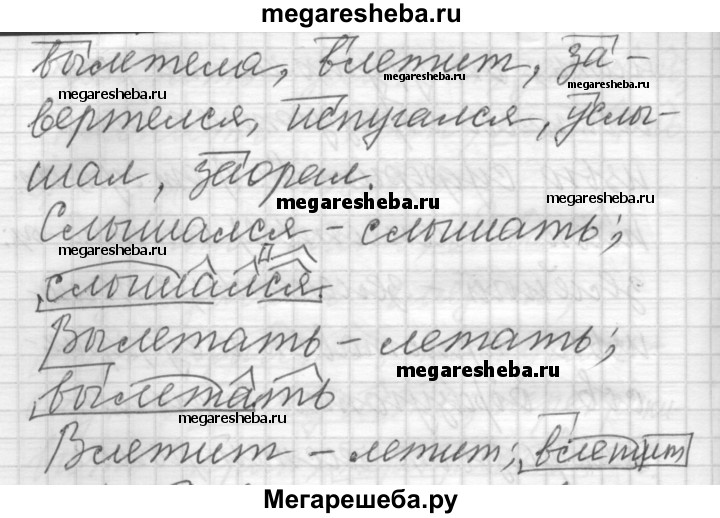 megaresheba.ru
вылетела, влетит, за-
megaresheba.ru
megaresheba.ru
megaresheba.ru
вертелся, испугался, услы-
шал, заорал.
megaresheba.ru
megaresheba.ru
Слышался – слышать;
megaresheba.ru
слышался.
Вылетать – летать;
megaresheba.ru
вылетать
megaresheba.ru
Влетит – летит; влетит
Мегарешеба.ру